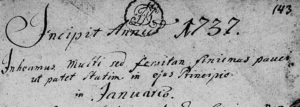 143
Incipit Annus 1737.
Inheamus Multi sed finientes pauci
ut patet Statim in ejus Principio
in Januario.